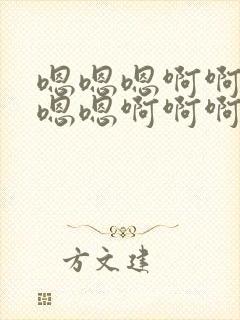 嗯嗯嗯啊啊
嗯嗯啊啊啊
方文建